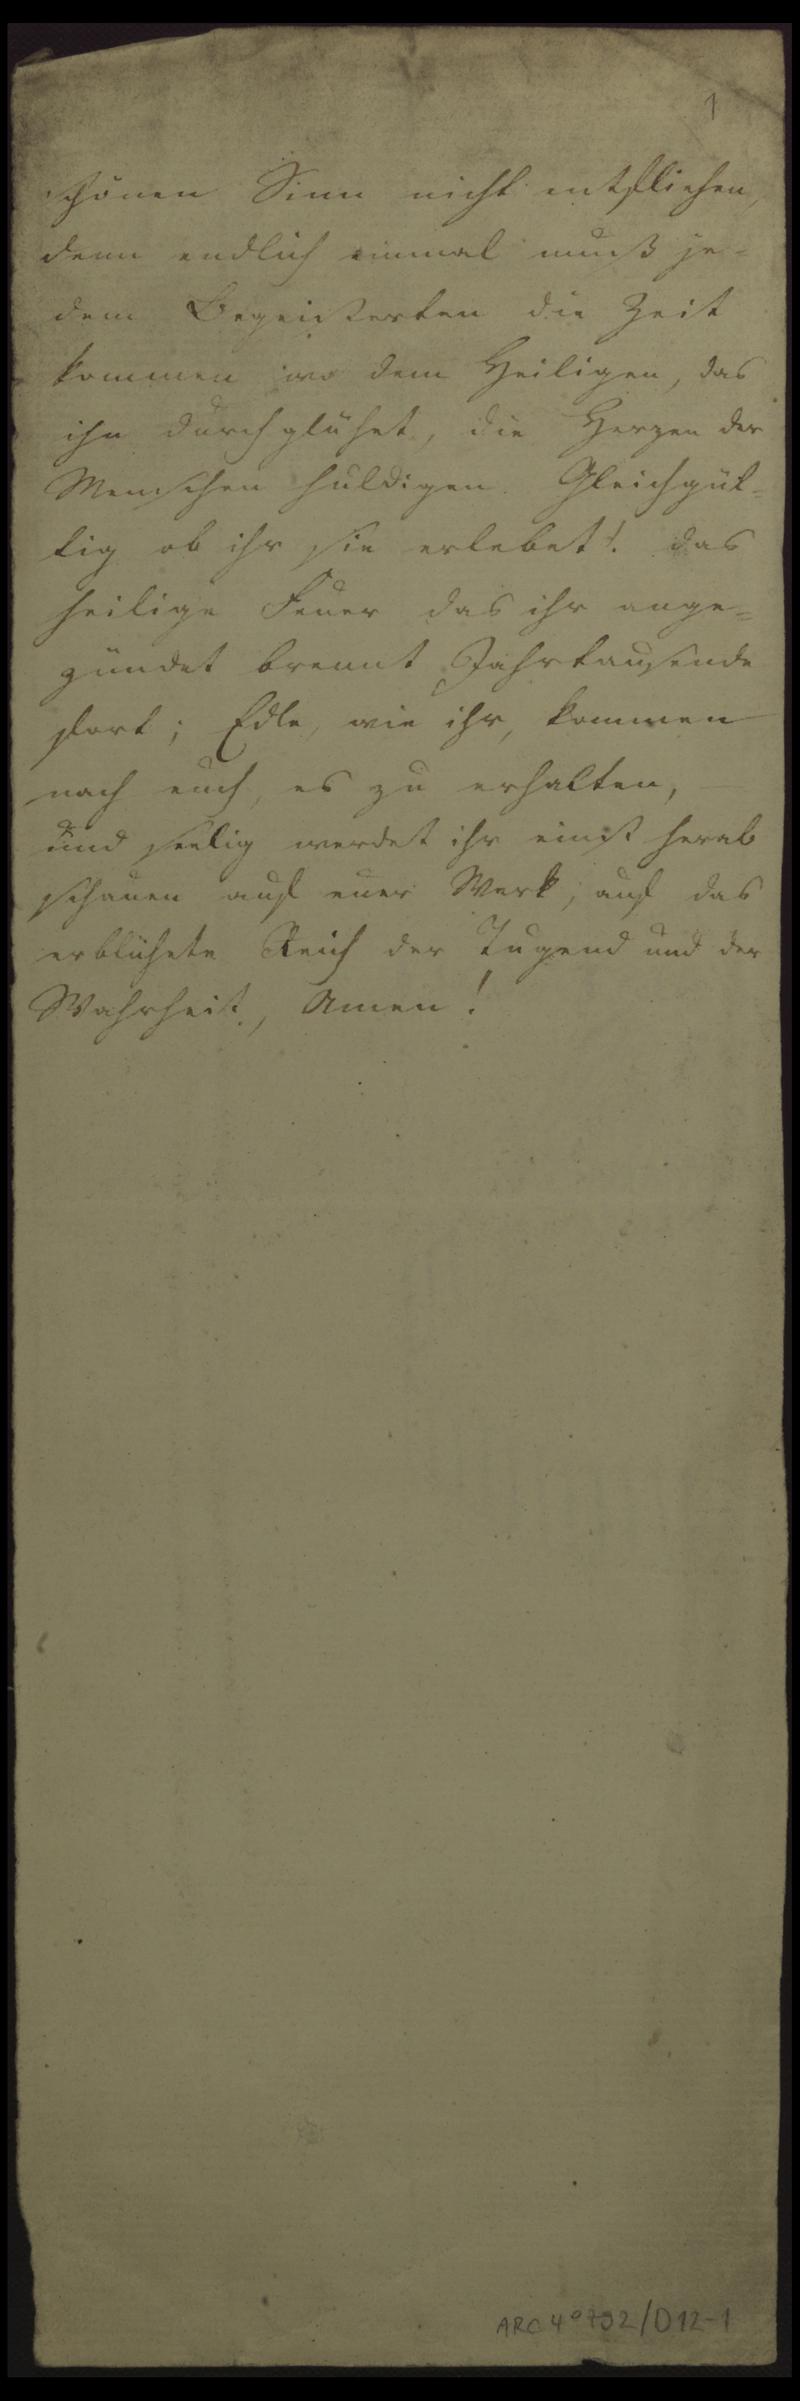 1
schönen Sinn nicht entfliehen,
denn endlich einmal muß je-
dem Begeisterten die Zeit
kommen wo dem Heiligen, das
ihn durchglühet, die Herzen der
Menschen huldigen. Gleichgül-
tig ob ihr sie erlebet! das
heilige Feuer das ihr ange-
zündet brennt Jahrtausende
fort; Edle, wie ihr, kommen
nach euch, es zu erhalten,
und seelig werdet ihr einst herab
schauen auf euer Werk, auf das
erblühete Reich der Tugend und der
Wahrheit, Amen!
ARC 4° 792/D12-1